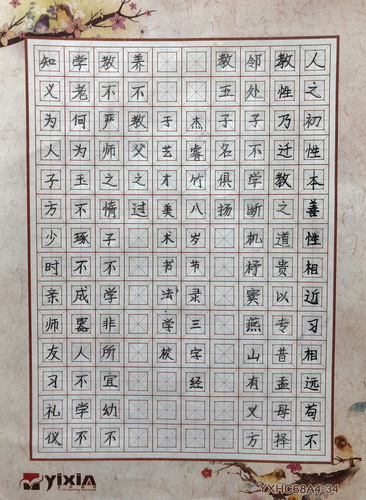 人之初性本善性相近习相远苟不
教性乃迁教之道贵以专昔孟母择
邻处子不学断机杼窦燕山有义方
教五子名俱扬
杰睿竹八岁节录三字经
于艺才美术书法学校
养不教父之过
教不严师之惰子不学非所宜幼不
学老何为玉不琢不成器人不学不
知义为人子方少时亲师友习礼仪
yixiA
YXHC68A4-34